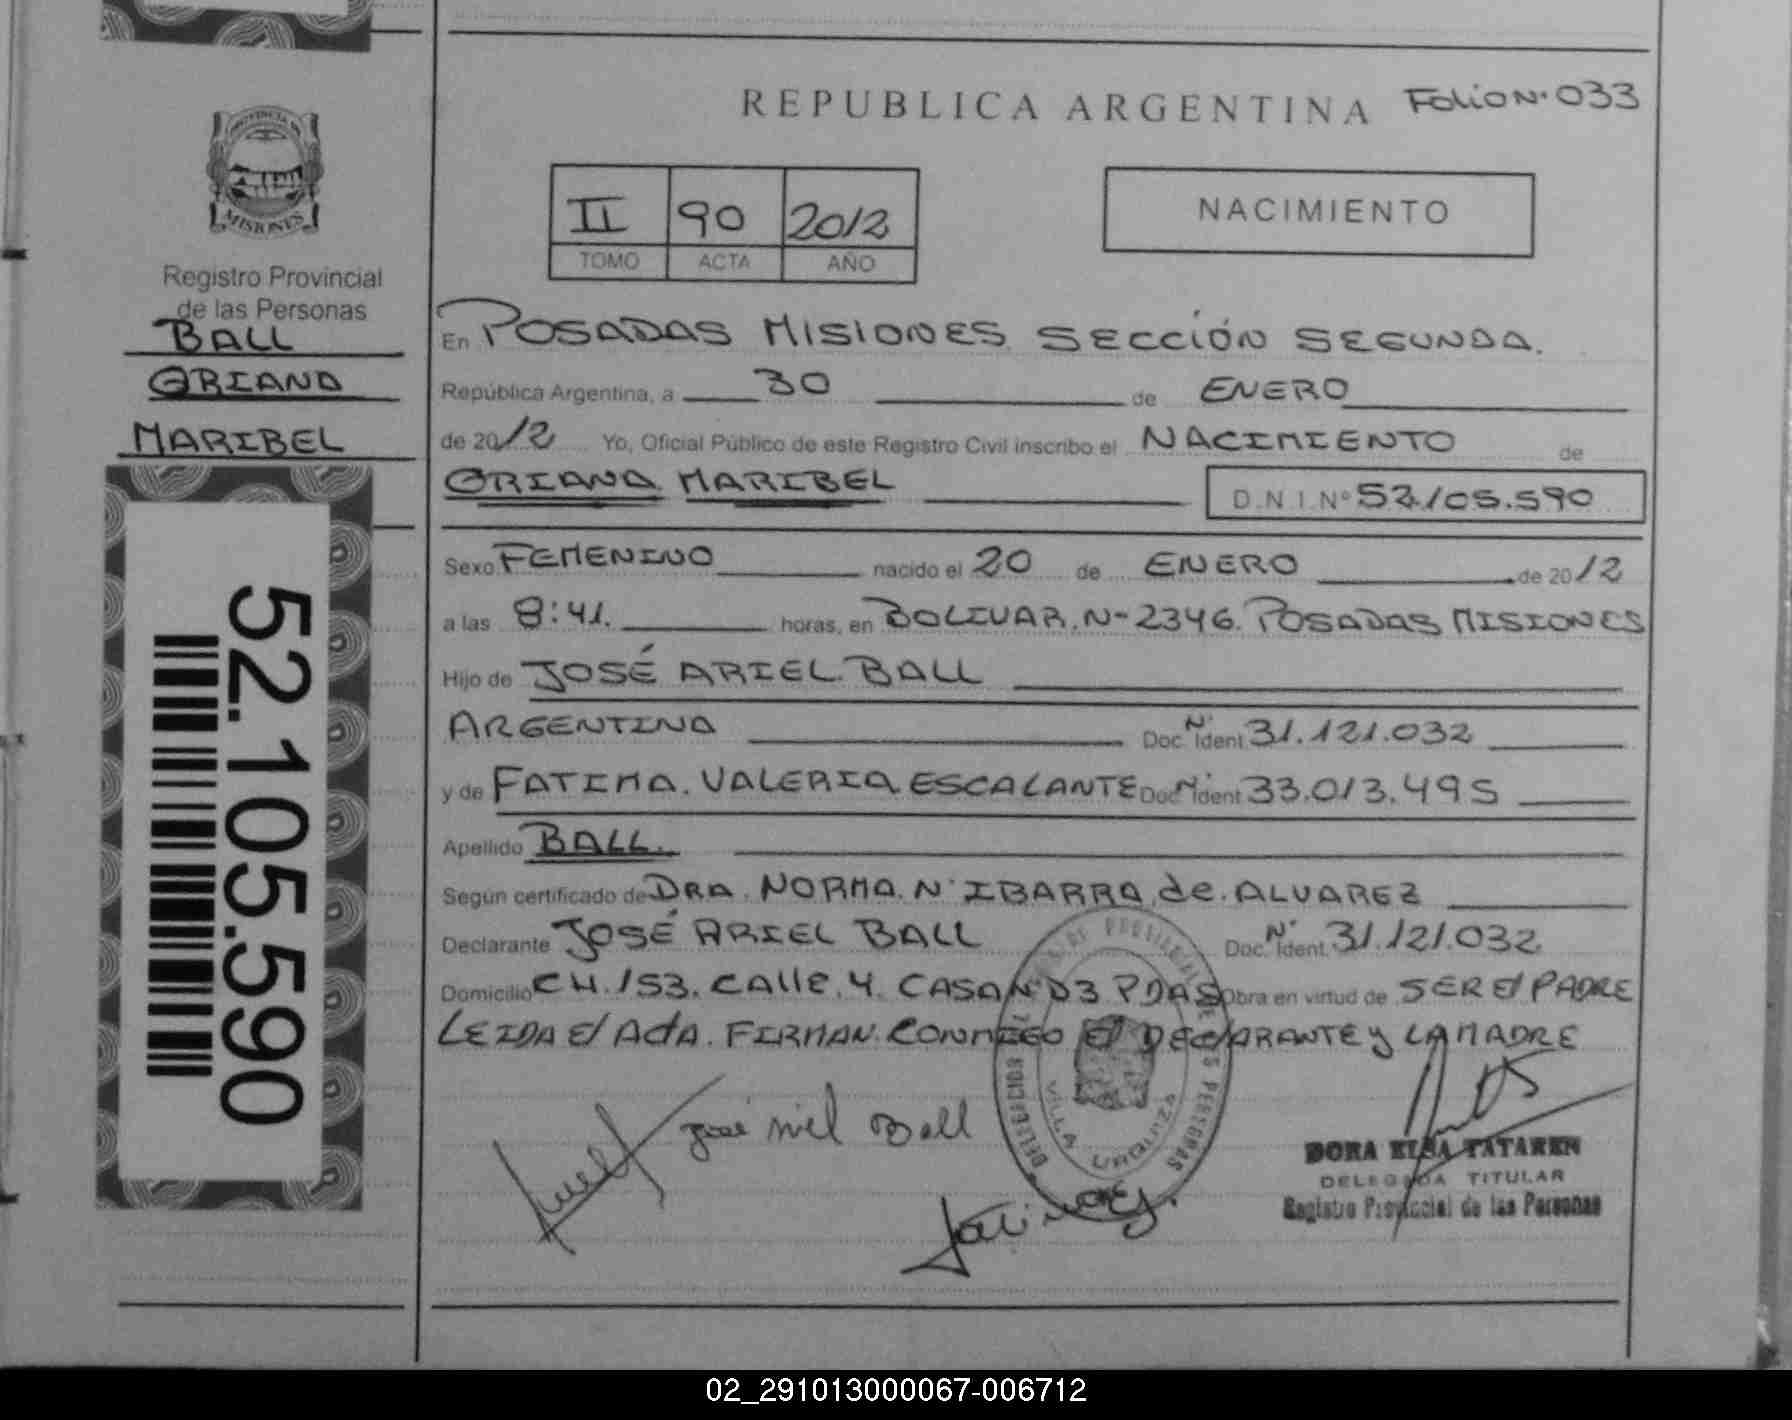 REPUBLICA ARGENTINA Folio N· 033
PROVINCIA DE
MISIONES
II 90 2012
TOMO ACTA AÑO
NACIMIENTO
Registro Provincial
de las Personas
BALL
ORIANA
MARIBEL
52.105.590
En POSADAS MISIONES SECCIÓN SEGUNDA.
República Argentina, a 30 de ENERO
de 2012 Yo, Oficial Público de este Registro Civil inscribo el NACIMIENTO de
ORIANA MARIBEL D.N.I.Nº 52.105.590
Sexo FEMENINO nacido el 20 de ENERO de 2012
a las 8:41. horas, en BOLIVAR. N- 2346. POSADAS MISIONES
Hijo de JOSÉ ARIEL BALL
ARGENTINO Doc. N· Ident. 31.121.032
y de FATIMA. VALERIA ESCALANTE Doc. N· Ident. 33.013.495
Apellido BALL.
Según certificado de DRA. NORMA. N· IBARRA de ALVAREZ
Declarante JOSÉ ARIEL BALL Doc. N· Ident. 31.121.032
Domicilio CH. 153. CALLE. 4. CASA N· 03 PDAS Obra en virtud de SER El PADRE
LEIDA El ActA. FIRMAN CONMIGO El DEClARANTE y LA MADRE
Ball
VILLA URQUIZA
DORA ELSA TATAREN
DELEGADA TITULAR
Registro Provincial de las Personas
02_291013000067-006712